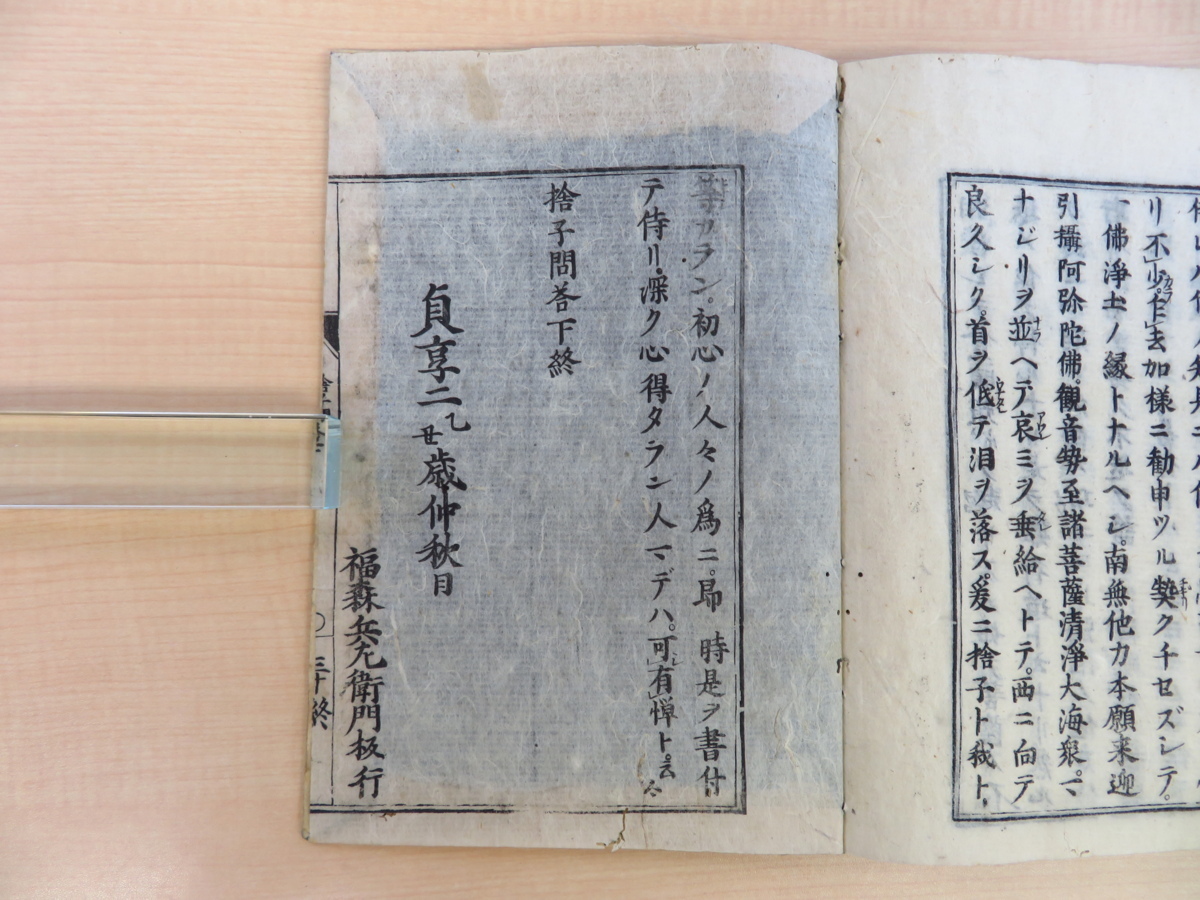 リ不少ト云加様ニ勧申ツル契クチセズシテ。
一佛浄土ノ縁トナルヘシ。南無他力本願来迎
引攝阿弥陀佛。観音勢至諸菩薩清淨大海衆。マ
ナジリヲ並ヘテ哀ミヲ垂給ヘトテ。西ニ向テ
良久シク。首ヲ低テ泪ヲ落ス。爰ニ捨子ト我ト、
等カラン。初心ノ人々ノ爲ニ。即時是ヲ書付
テ侍リ。深ク心得タラン人マデハ。可有憚ト。云々
捨子問荅下終
貞享二乙丑歳仲秋日
福森兵左衛門板行
三十終